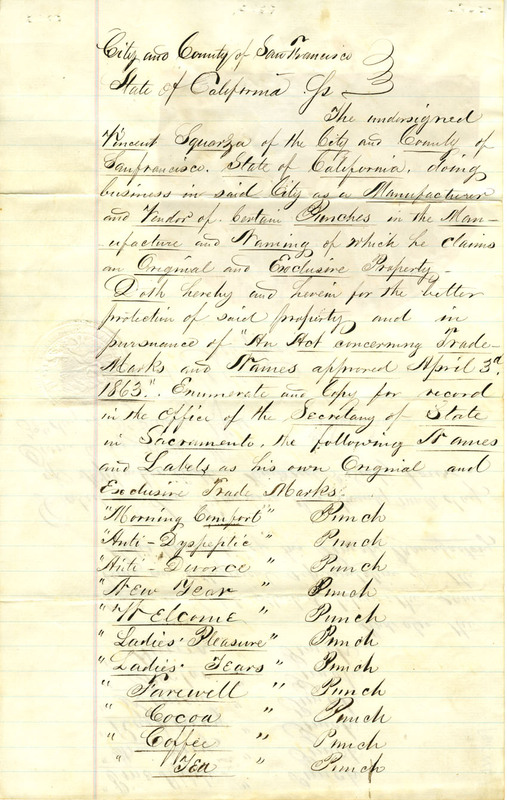 City and County of San Francisco
State of California Ss
The undersigned
Vincent Squarza of the City and County of
Sanfrancisco. State of California, doing
business in said City as a Manufacturer
and Vendor of Certain Punches in the Man-
ufacture and Naming of which he claims
an Original and Exclusive Property-
Doth hereby and herein for the better
protection of said property and in
pursuance of "An Act concerning Trade-
Marks and Names approved April 3d.
1863". Enumerate and Copy for record
in the office of the Secretary of State
in Sacramento, the following Names
and Labels as his own Original and
Exclusive Trade Marks.
"Morning Comfort" Punch
"Anti-Dyspeptic" Punch
"Anti-Divorce" Punch
"New Year" Punch
"Welcome" Punch
"Ladies' Pleasure" Punch
"Ladies' Tears" Punch
"Farewell" Punch
"Cocoa" Punch
"Coffee" Punch
"Tea" Punch